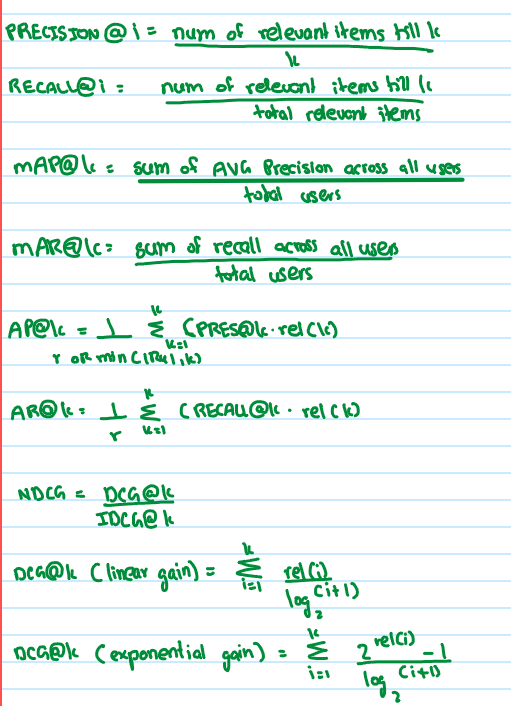 PRECISION@i = num of relevant items till k / k
RECALL@i = num of relevant items till k / total relevant items
mAP@k = sum of AVG Precision across all users / total users
mAR@k = sum of recall across all users / total users
AP@k = 1 / r or min(|Ru|,k) Σ_{k=1}^{k} (PRES@k · rel(k)
AR@k = 1/r Σ_{k=1}^{k} (RECALL@k · rel(k)
NDCG = DCG@k / IDCG@k
DCG@k (linear gain) = Σ_{i=1}^{k} rel(i) / log_2 (i+1)
DCG@k (exponential gain) = Σ_{i=1}^{k} 2^{rel(i)} - 1 / log_2 (i+1)